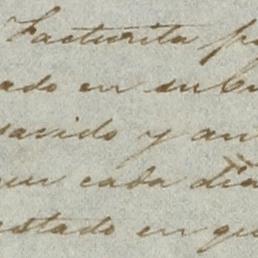 Facturita p
ado en su bu
nacido y an
un cada dia
estado en qu